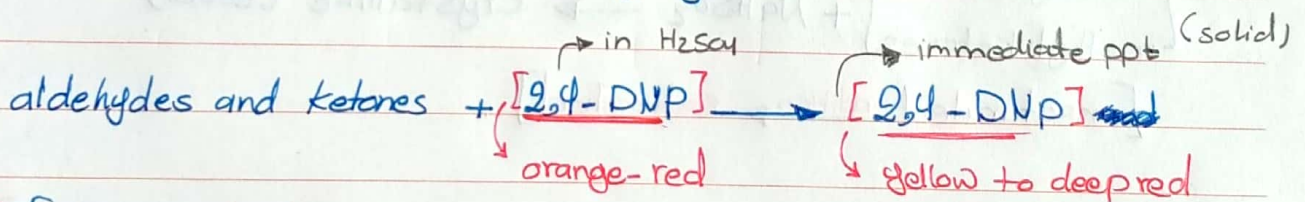 in H2SO4
immediate ppt (solid)
aldehydes and ketones + [2,4-DNP] → [2,4-DNP]
orange-red
yellow to deep red